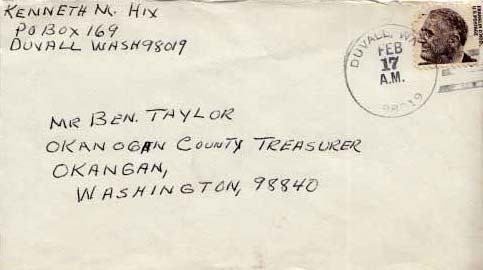 KENNETH M. HIX
PO BOX 169
DUVALL WASH 98019
DUVALL, WA
FEB
17
A.M.
98019
MR BEN. TAYLOR
OKANOGAN COUNTY TREASURER
OKANGAN,
WASHINGTON, 98840